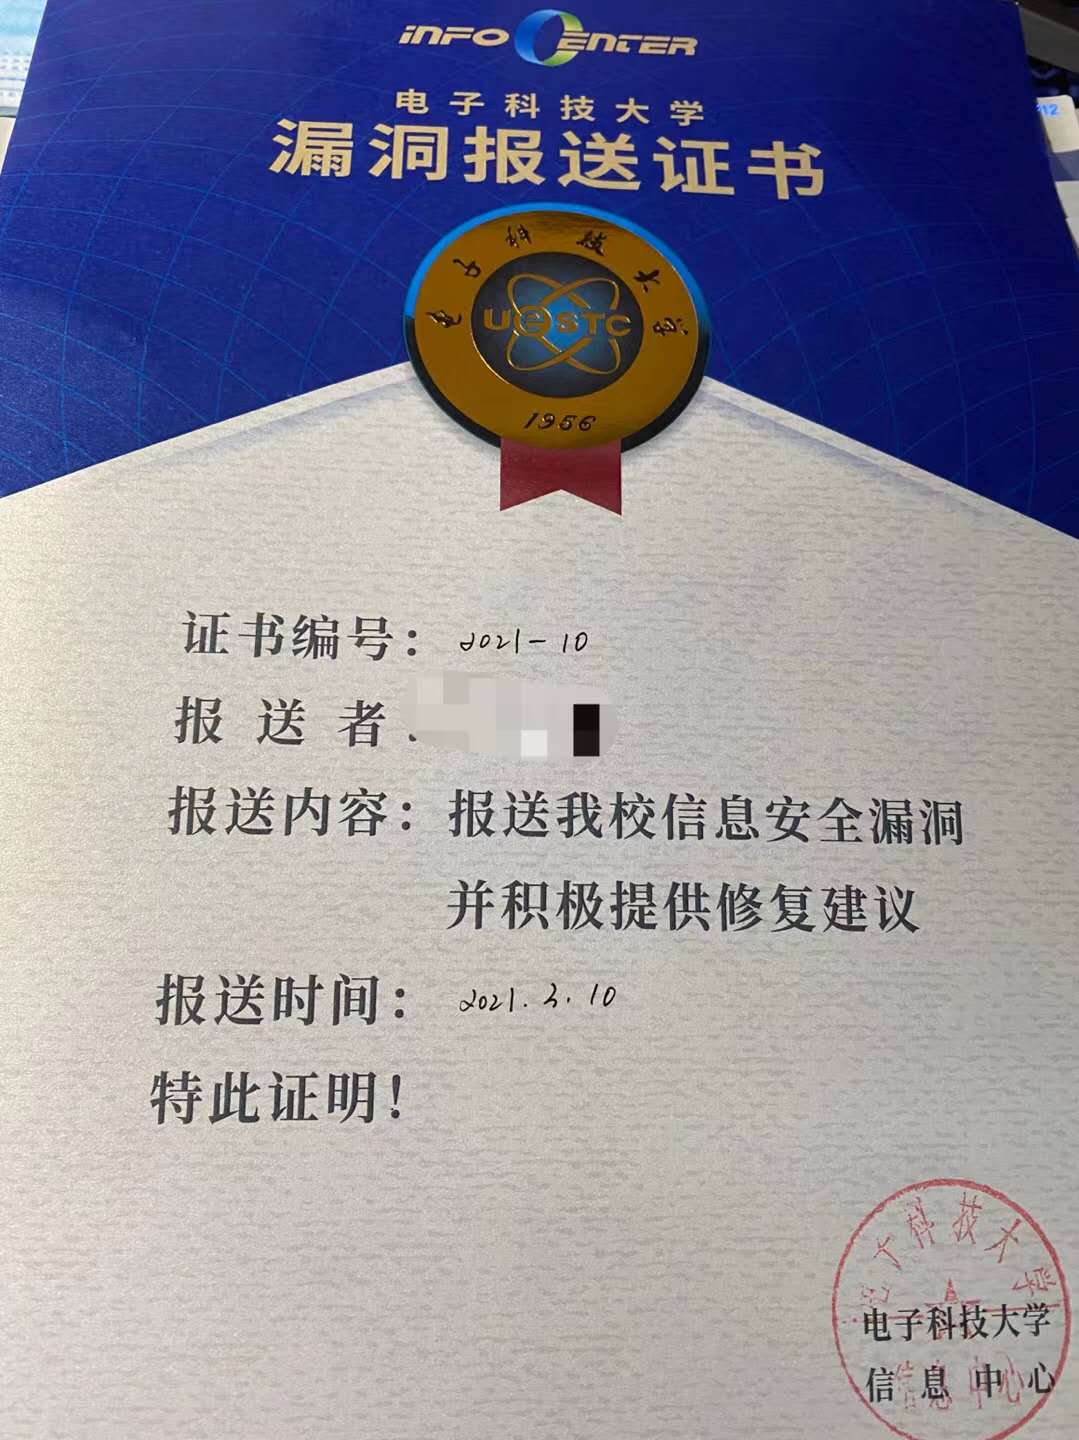 INFO CENTER
电子科技大学
漏洞报送证书
电子科技大学
UESTC
1956
证书编号：2021-10
报送者
报送内容：报送我校信息安全漏洞
并积极提供修复建议
报送时间：2021.3.10
特此证明！
电子科技大学
电子科技大学
信息中心
信息中心